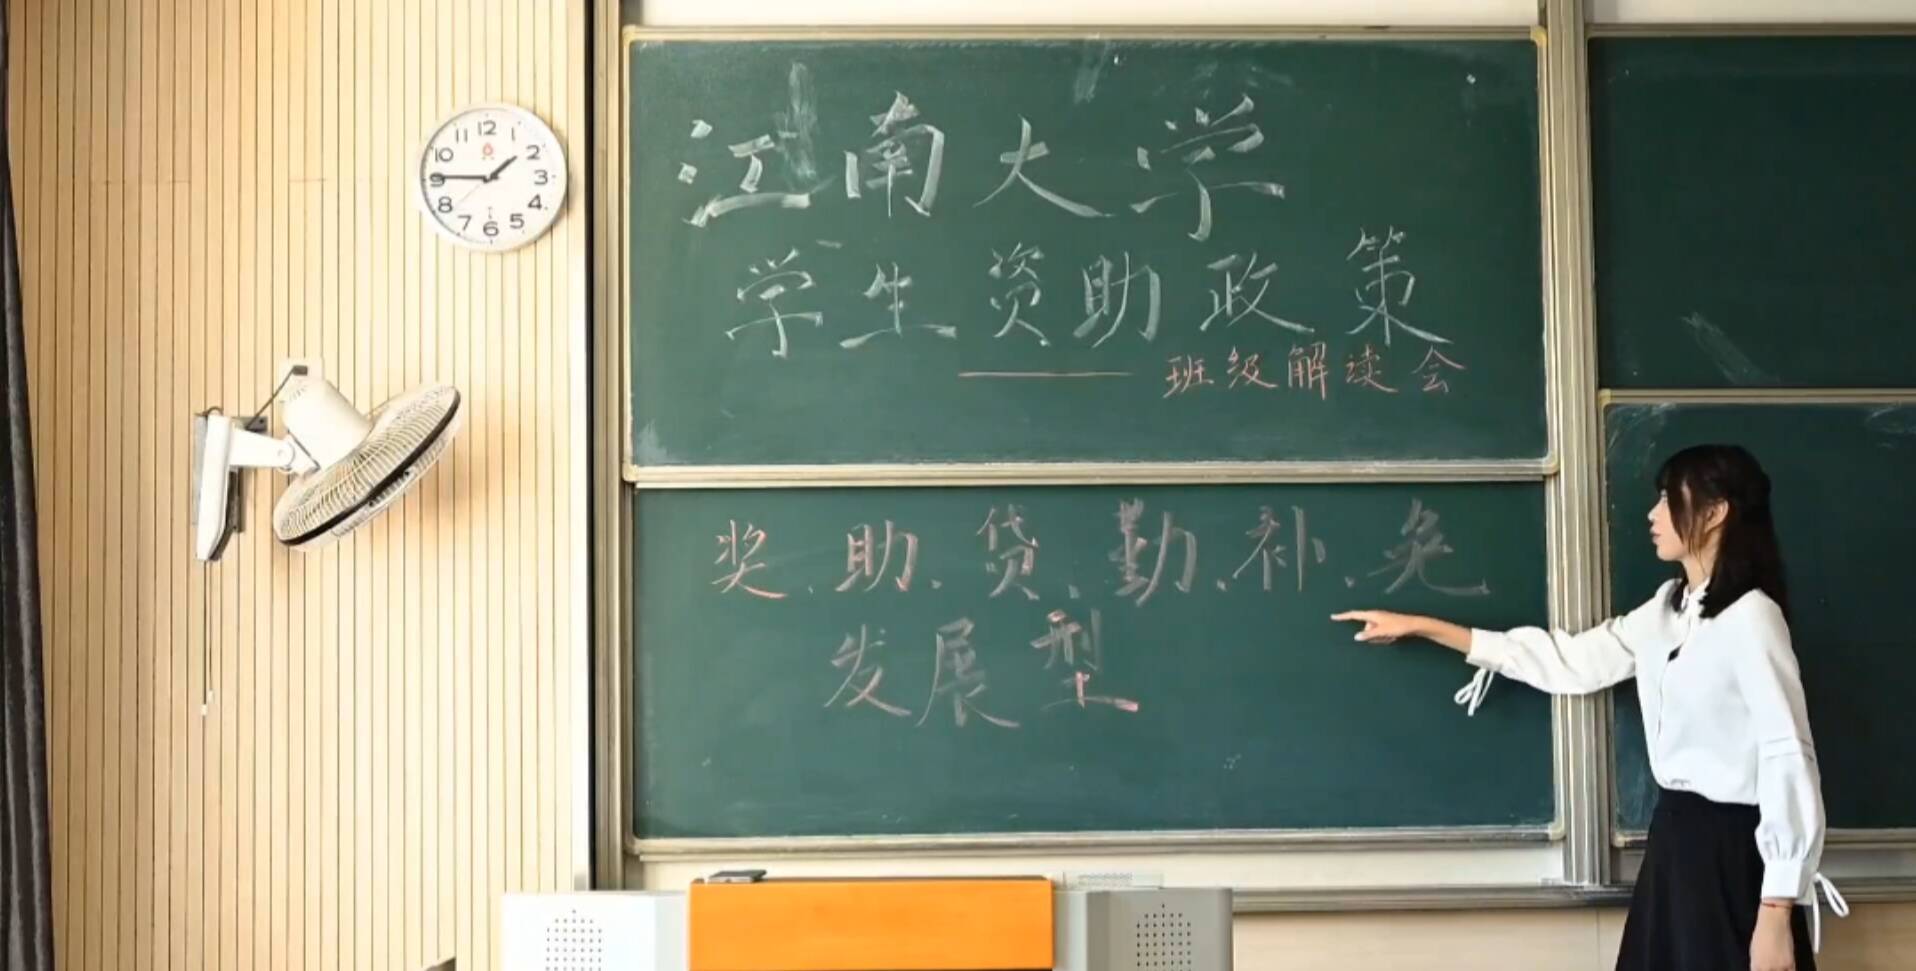 江南大学
学生资助政策
——班级解读会
奖、助、贷、勤、补、免
发展型
12
1
2
3
4
5
6
7
8
9
10
11